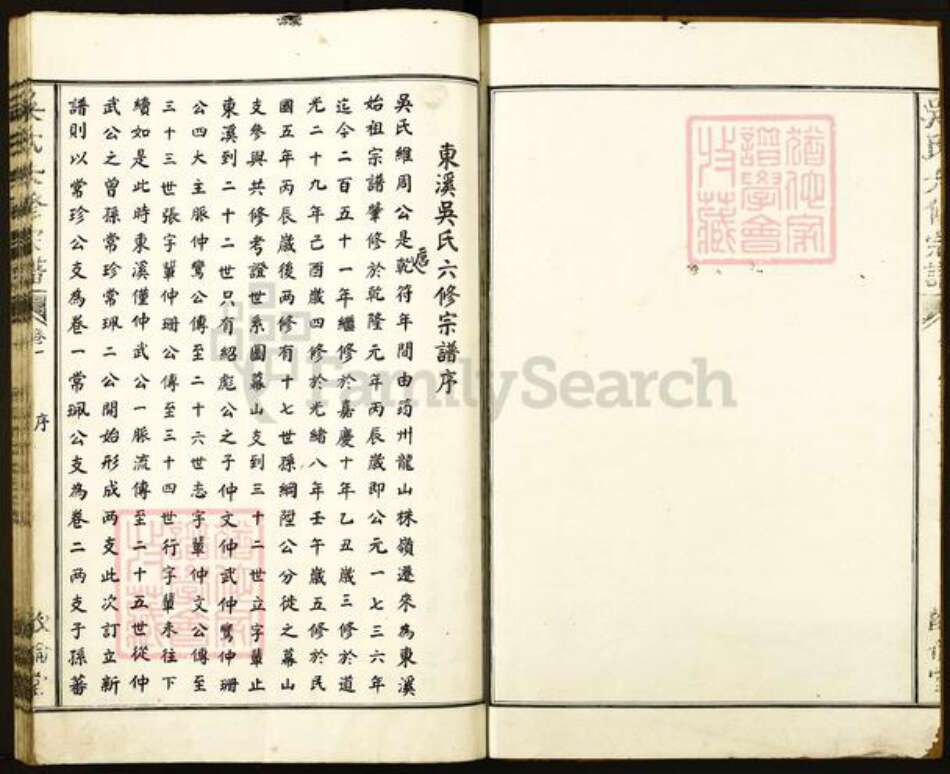 東溪吳氏六修宗譜序
吳氏維周公是乾符年間由筠州龍山株嶺遷來為東溪
始祖宗譜肇修於乾隆元年丙辰歲即公元一七三六年
迄今二百五十一年繼修於嘉慶十年乙丑歲三修於道
光二十九年己酉歲四修於光緒八年壬午歲五修於民
國五年丙辰歲後兩修有十七世孫綱陞公分徙之幕山
支參與共修考證世系圖幕山支到三十二世立字輩止
東溪到二十二世只有紹彪公之子仲文仲武仲鸞仲珊
公四大主脈仲鸞公傳至二十六世志字輩仲文公傳至
三十三世張字輩仲珊公傳至三十四世行字輩未往下
續如是此時東溪僅仲武公一脈流傳至二十五世從仲
武公之曾孫常珍常珮二公開始形成两支此次訂立新
譜則以常珍公支為卷一常珮公支為卷二两支子孫蕃
吳氏六修宗譜
卷一
序
敦倫堂
FamilySearch